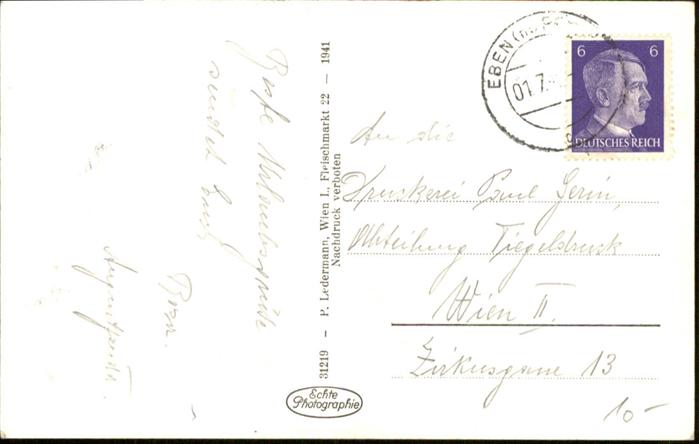 Beste Urlaubsgrüße
sendet Euch
31219 – P. Ledermann, Wien I., Fleischmarkt 22 – 1941
Nachdruck verboten
Echte
Photographie
EBEN
01.7.
6 6
DEUTSCHES REICH
An die
Druckerei Paul Gerin,
Abteilung Tiegeldruck
Wien II.
Zirkusgasse 13
10-